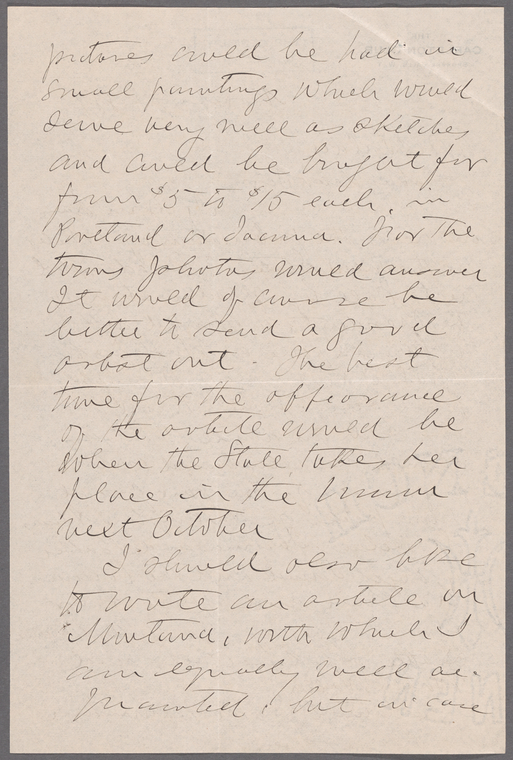 pictures could be had in
small paintings which would
serve very well as sketches
and could be bought for
from $5 to $15 each, in
Portland or Tacoma. For the
towns photos would answer
It would of course be
better to send a good
artist out. The best
time for the appearance
of the article would be
when the State takes her
place in the Union
next October
I should also like
to write an article on
Montana, with which I
am equally well ac-
quainted, but in case